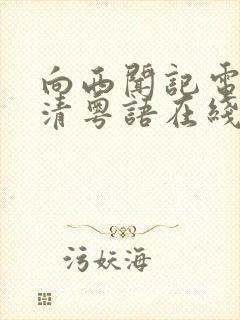 向西聞記電
清粵語在綫
污妖海